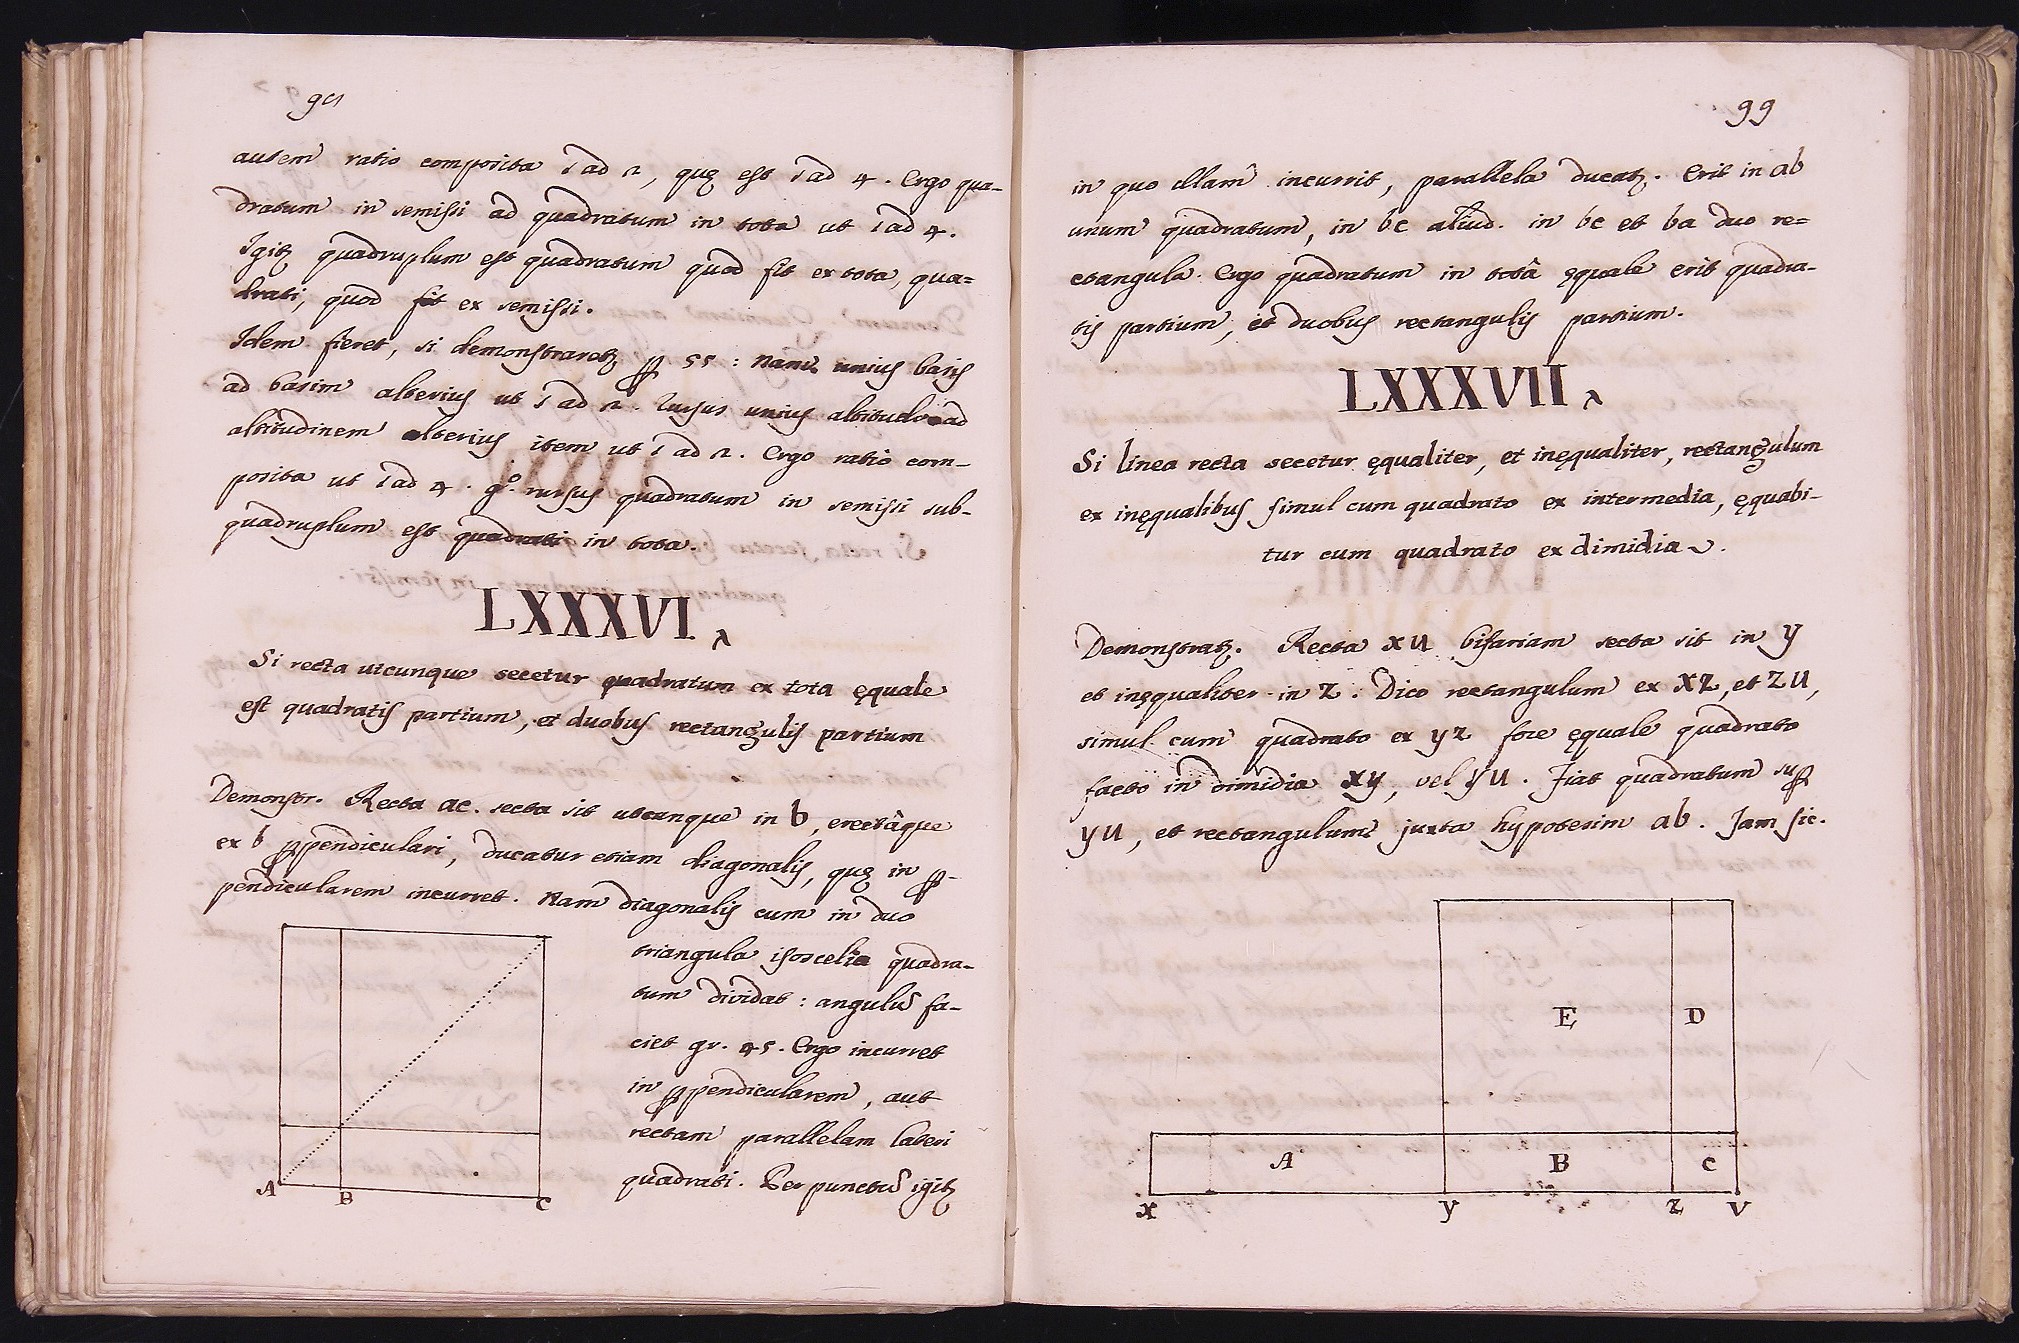 98
autem ratio composita 1 ad 2, quę est 1 ad 4. Ergo qua-
dratum in semissi ad quadratum in tota ut 1 ad 4.
Igitꝫ quadruplum est quadratum quod fit ex tota, qua=
drati, quod fit ex semissi.
Idem fieret, si demonstraretꝫ ꝑ 55: Nam unius basis
ad basim alterius ut 1 ad 2. Rursus unius altitudo ad
altitudinem alterius item ut 1 ad 2. Ergo ratio com-
posita ut 1 ad 4. gº. rursus quadratum in semissi sub-
quadruplum est quadrati in tota.
LXXXVI.
Si recta utcunque secetur quadratum ex tota ęquale
est quadratis partium, et duobus rectangulis partium
Demonstr. Recta ac. secta sit utcunque in b, erectâque
ex b ꝑpendiculari, ducatur etiam diagonalis, quę in ꝑ-
pendicularem incurret. Nam diagonalis cum in duo
triangula isoscelia quadra-
tum dividat: angulũ fa-
ciet gr. 45. Ergo incurret
in ꝑpendicularem, aut
rectam parallelam lateri
quadrati. Per punctũ igitꝫ
A B C
99
in quo illam incurrit, parallela ducatꝫ. Erit in ab
unum quadratum, in bc aliud. in bc et ba duo re=
ctangula. Ergo quadratum in totâ ęquale erit quadra-
tis partium, et duobus rectangulis partium.
LXXXVII
Si linea recta secetur ęqualiter, et inęqualiter, rectangulum
ex inęqualibus simul cum quadrato ex intermedia, ęquabi-
tur cum quadrato ex dimidia.
Demonstratꝫ. Recta xu bifariam secta sit in y
et inęqualiter in z. Dico rectangulum ex xz, et zu,
simul cum quadrato ex yz fore ęquale quadrato
facto in dimidia xy, vel yu. Fiat quadratum suꝑ
yu, et rectangulum juxta hypotesim ab. Jam sic.
E D
A B C
x y z v